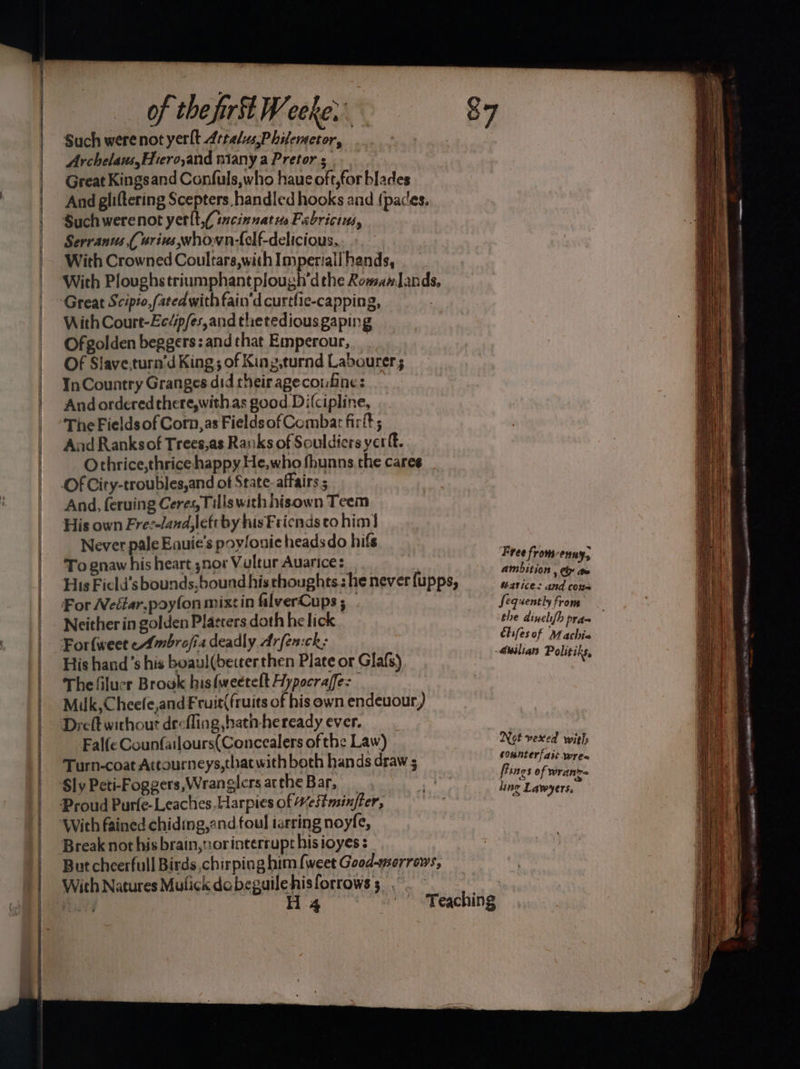 of the firſt Weeke. 87
Such were not yerſt Attalus, Philemetor,
Archelaus, Hiero, and many a Pretor;
Great Kings and Conſuls, who haue oft, for blades
And gliſtering Scepters, handled hooks and ſpades.
Such were not yerſt, Cincinnatus Fabricius,
Serranus, Curius, who vn-ſelf-delicious,
With Crowned Coultars, with Imperiall hands,
With Ploughs triumphant plough'd the Roman lands.
Great Scipio, ſated with fain'd curtſie-capping,
With Court-Eclipſes, and the tedious gaping
Of golden beggers: and that Emperour,
Of Slaue, turn'd King; of King, turnd Labourer;
In Country Granges did their age confine:
And ordered there, with as good Diſcipline,
The Fields of Corn, as Fields of Combat firſt;
And Ranks of Trees, as Ranks of Souldiers yerſt.
O thrice, thrice happy He, who ſhunns the cares
Of City-troubles, and of State-affairs;
And, ſeruing Ceres, Tills with his own Teem
His own Free-land, left by his Friends to him!
Never pale Enuie's poyſonie heads do hiſs
To gnaw his heart, nor Vultur Auarice:
His Field's bounds, bound his thoughts: he never ſupps,
For Nectar, poyſon mixt in ſilver Cups;
Neither in golden Platters doth he lick
For ſweet Ambroſia deadly Arſenick:
His hand's his boaul (better then Plate or Glaſs)
The ſiluer Brook his ſweeteſt Hypocraſſe:
Milk, Cheeſe, and Fruit (fruits of his own endeuour)
Dreſt without dreſſing, hath he ready ever.
Falſe Counſailours (Concealers of the Law)
Turn-coat Attourneys, that with both hands draw;
Sly Peti-Foggers, Wranglers at the Bar,
Proud Purſe-Leaches, Harpies of Weſtminſter,
With fained chiding, and foul iarring noyſe,
Break not his brain, nor interrupt his ioyes:
But cheerfull Birds, chirping him ſweet Good-morrows,
With Natures Muſick do beguile his ſorrows;
H 4 Teaching
Free from enuy,
ambition, & a-
uarice: and con-
ſequently from
the diueliſh pra-
ctiſes of Machia-
uilian Politiks.
Not vexed with
counterfait wre-
ſtings of wrang-
ling Lawyers.